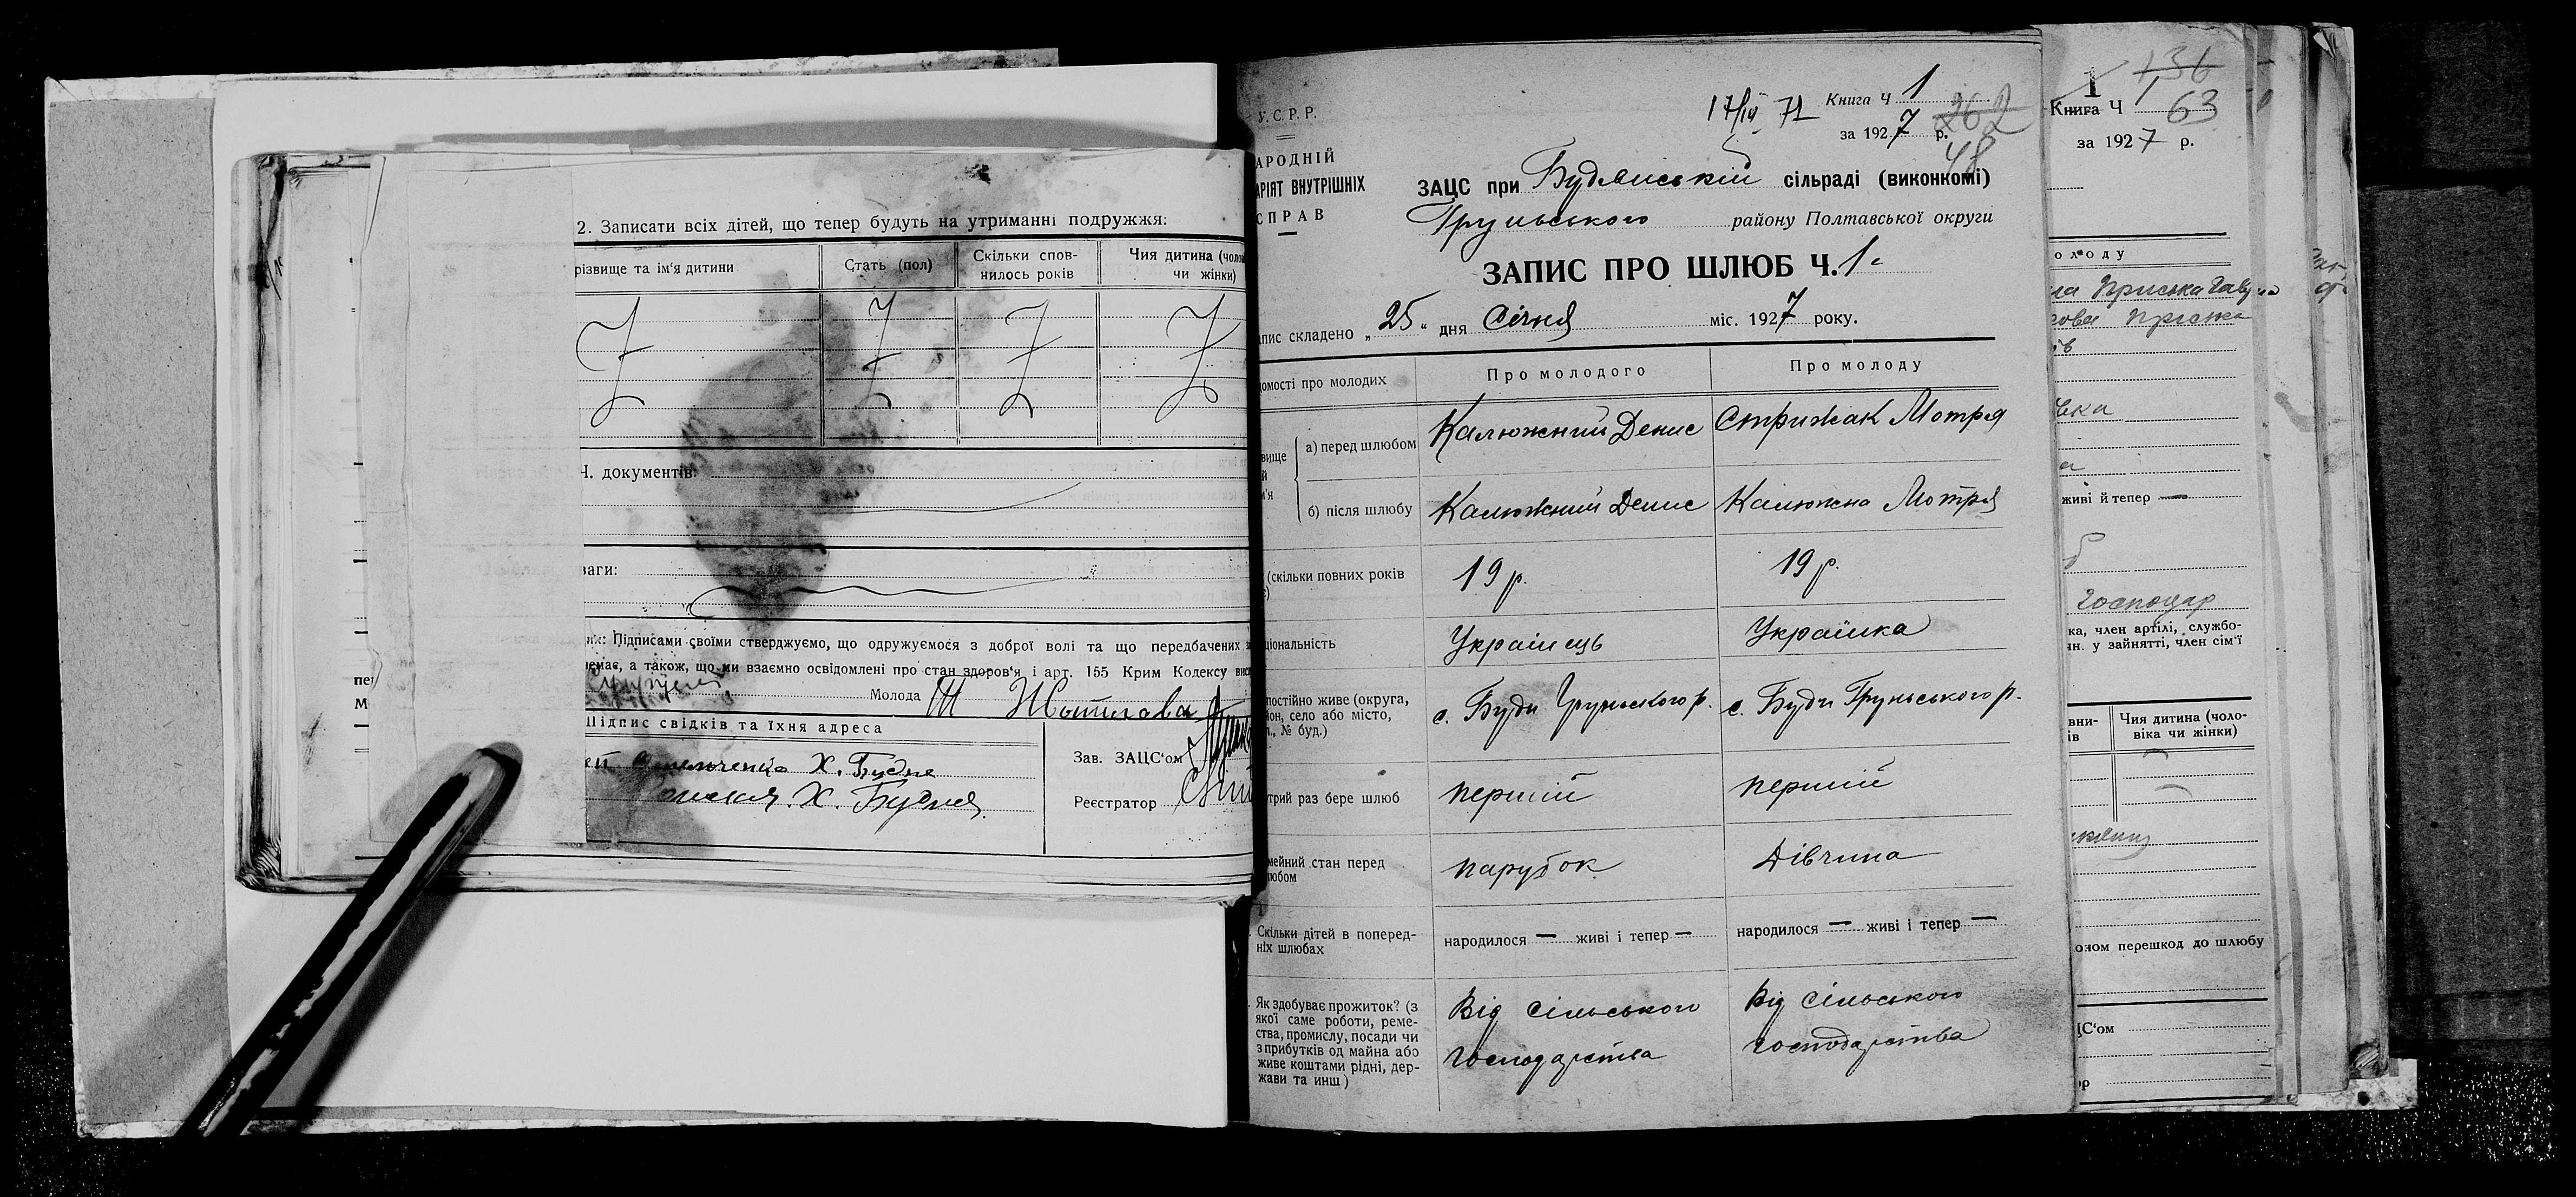 2. Записати всіх дітей, що тепер будуть на утриманні подружжя:
різвище та ім'я дитини
Стать (пол)
Скільки спов-
нилось років
Чия дитина (чоло
чи жінки)
Ч. документів:
ваги:
Підписами своїми стверджуємо, що одружуємося з доброї волі та що передбачених
немає, а також, що ми взаємно освідомлені про стан здоров'я і арт. 155 Крим Кодексу
Молода
Підпис свідків та їхня адреса
Х. Будне
Х. Будня.
Зав. ЗАЦС'ом
Реєстратор
У. С. Р. Р.
АРОДНІЙ
АРІЯТ ВНУТРІШНІХ
СПРАВ
17/IV 71
Книга Ч 1
за 1927 р.
262
48
ЗАЦС при Будянській сільраді (виконкомі)
Груньського району Полтавської округи
ЗАПИС ПРО ШЛЮБ Ч. 1.
пис складено „25" дня Січня міс. 1927 року.
домості про молодих
Про молодого
Про молоду
вище
й
м'я
а) перед шлюбом
Калюжний Денис
Стрижак Мотря
б) після шлюбу
Калюжний Денис
Калюжна Мотря
(скільки повних років
19 р.
19 р.
ціональність
Українець
Українка
постійно живе (округа,
йон, село або місто,
л., № буд.)
с. Буди Груньского р.
с. Буди Груньського р.
трий раз бере шлюб
перший
перший
мейний стан перед
любом
парубок
Дівчина
Скільки дітей в поперед-
ніх шлюбах
народилося — живі і тепер —
народилося — живі і тепер —
Як здобуває прожиток? (з
якої саме роботи, реме-
ства, промислу, посади чи
з прибутків од майна або
живе коштами рідні, дер-
жави та инш)
Від сільського
господарства
Від сільського
господарства
1
136
Книга Ч 63
за 1927 р.
олоду
Приська
живі й тепер —
господар
ка, член артілі, службо-
ин. у зайнятті, член сім'ї
вни-
ів
Чия дитина (чоло-
віка чи жінки)
оном перешкод до шлюбу
ЦС'ом
ор